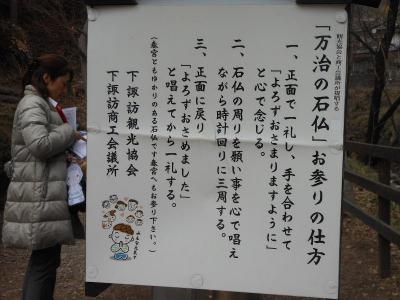 観光協会と商工会議所が提唱する
「万治の石仏」お参りの仕方
一、正面で一礼し、手を合わせて
「よろずおさまりますように」
と心で念じる。
二、石仏の周りを願い事を心で唱え
ながら時計回りに三周する。
三、正面に戻り
「よろずおさめました」
と唱えてから一礼する。
(春宮ともゆかりのある石仏です春宮へもお参り下さい。)
下諏訪観光協会
下諏訪商工会議所